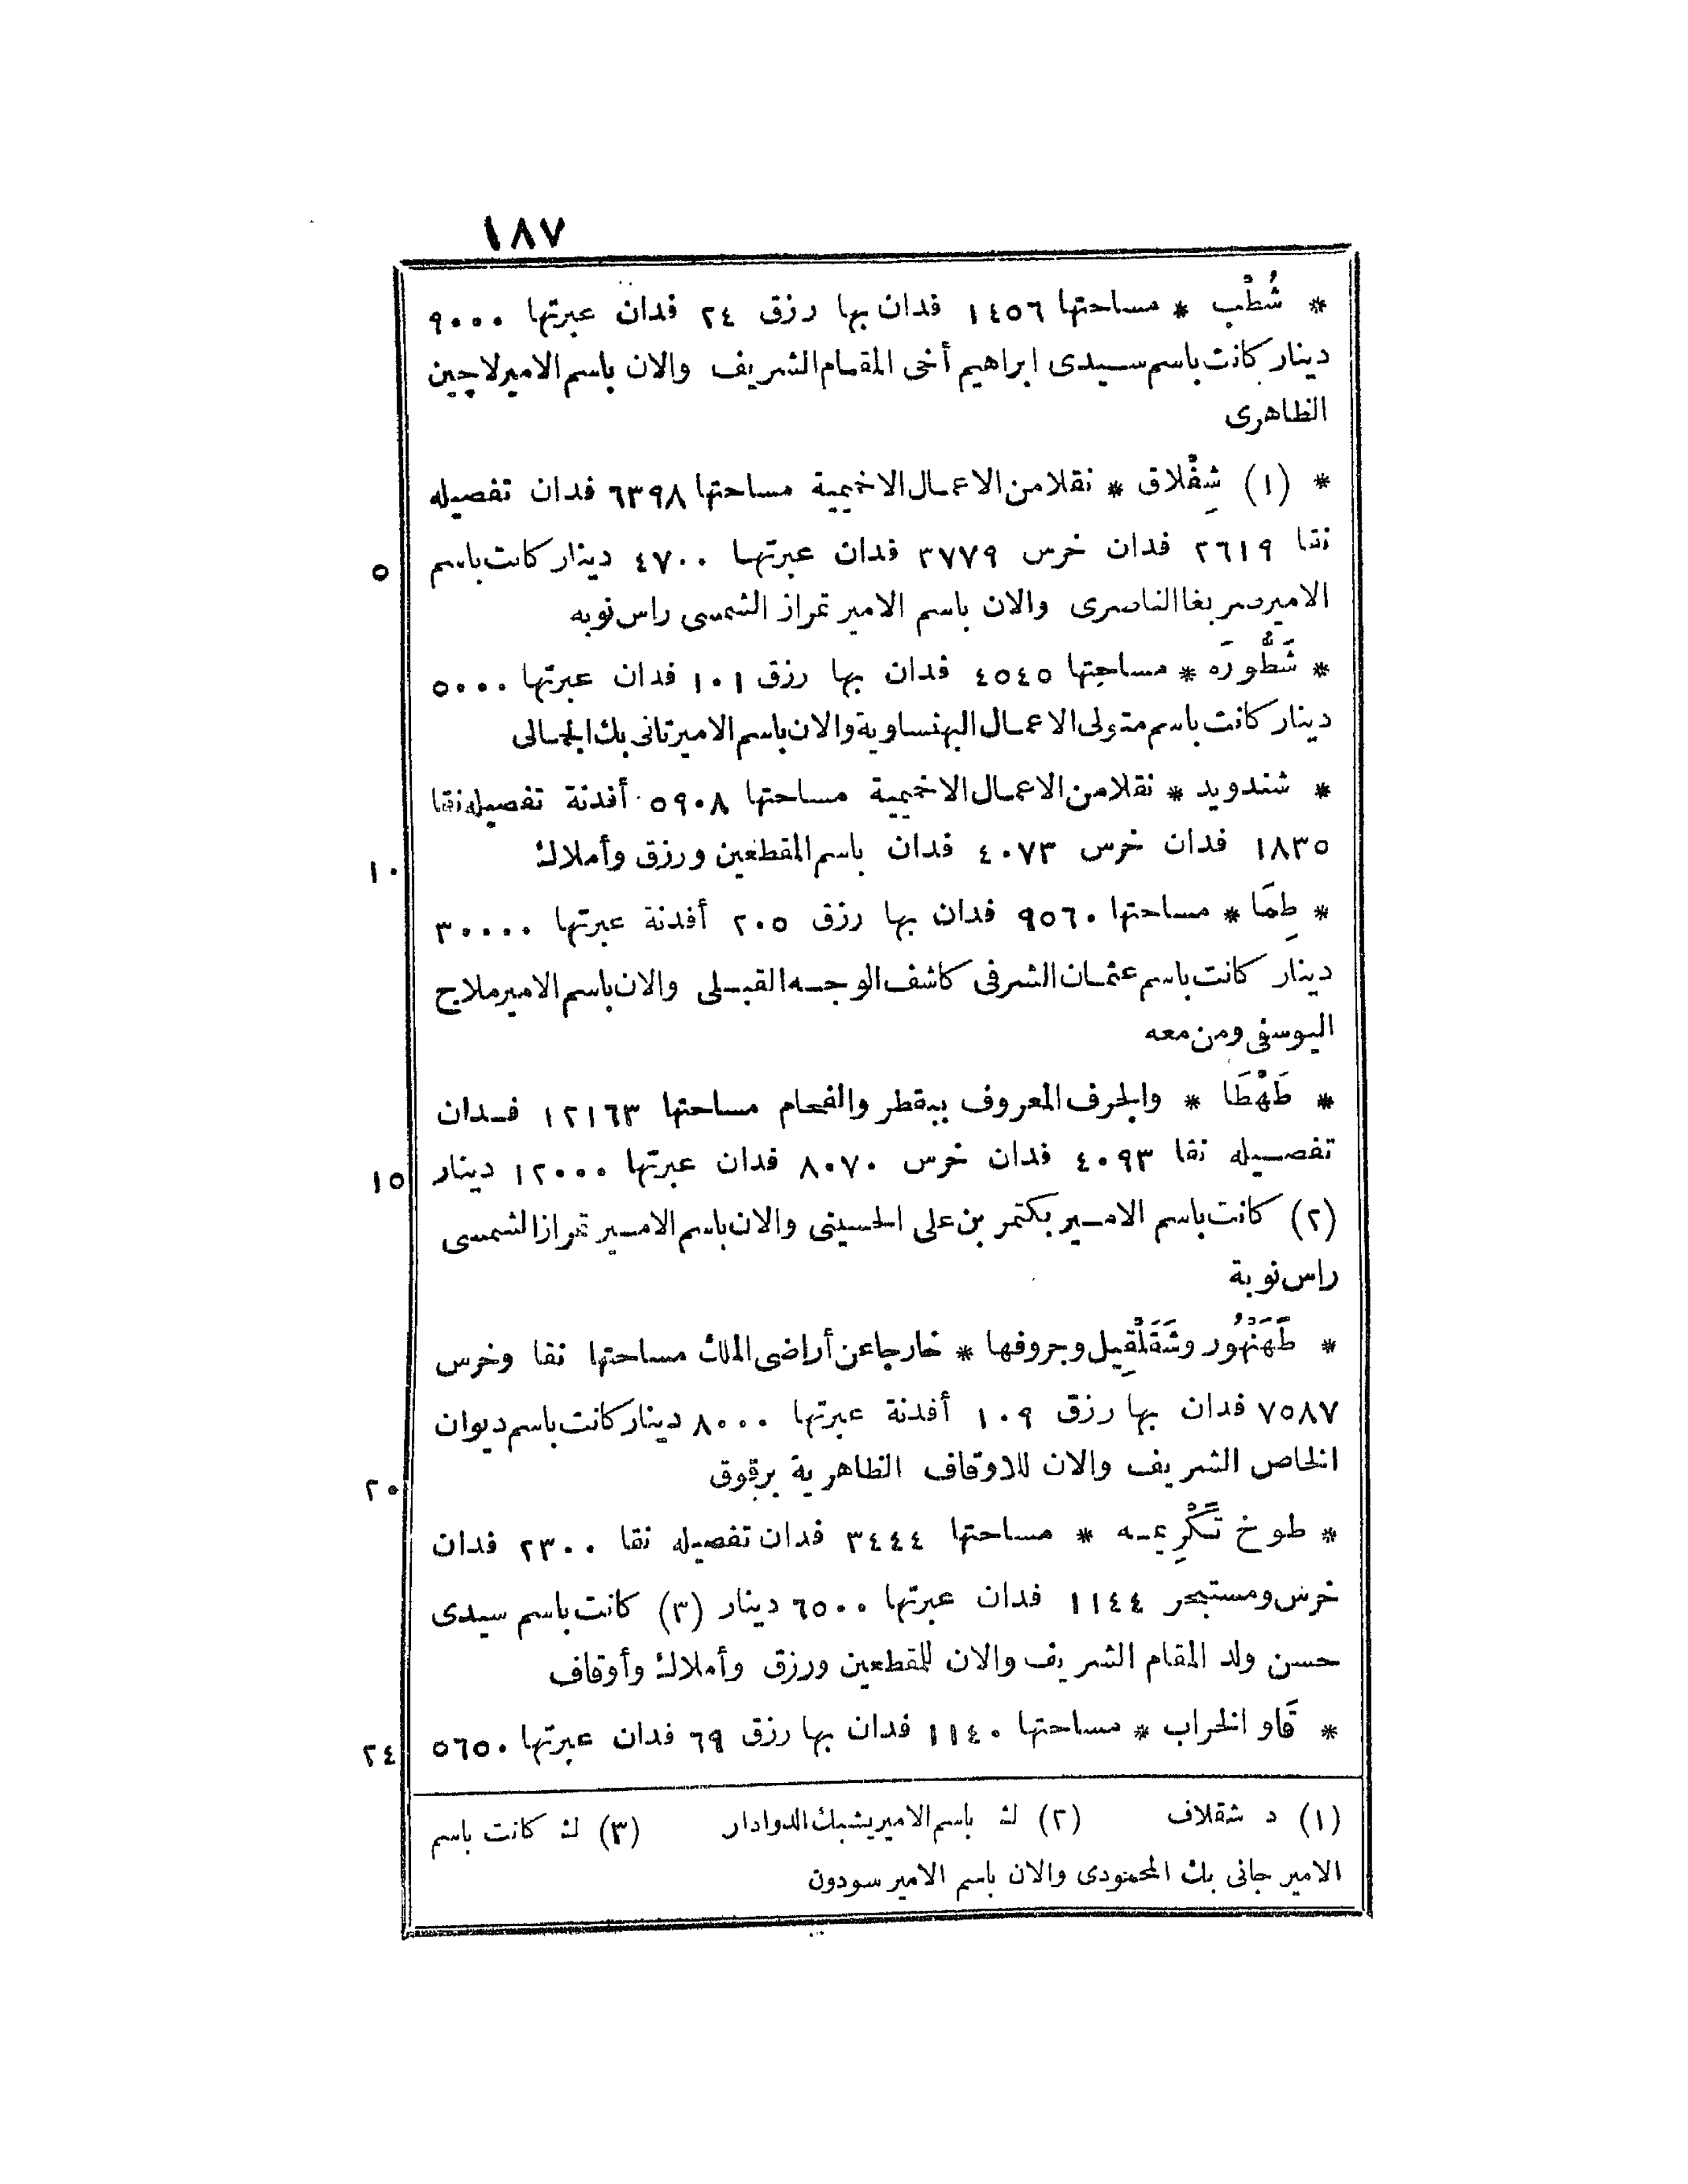 ١٨٧
* شُطْب * مساحتها ١٤٥٦ فدان بها رزق ٢٤ فدان عبرتها ٩٠٠٠
دينار كانت باسم سيدى ابراهيم أخى المقام الشريف والان باسم الامير لاجين
الظاهرى
* (١) شِقْلاق * نقلا من الاعمال الاخميمية مساحتها ٦٣٩٨ فدان تفصيله
نقا ٢٦١٩ فدان خرس ٣٧٧٩ فدان عبرتها ٤٧٠٠ دينار كانت باسم
٥
الامير صربغا الناصرى والان باسم الامير تمراز الشمسى راس نوبه
* شَطُّورَه * مساحتها ٤٥٤٥ فدان بها رزق ١٠١ فدان عبرتها ٥٠٠٠
دينار كانت باسم متولى الاعمال البهنساوية والان باسم الامير تانى بك الجمالى
* شندويد * نقلا من الاعمال الاخميمية مساحتها ٥٩٠٨ أفدنة تفصيله نقا
١٨٣٥ فدان خرس ٤٠٧٣ فدان باسم المقطعين ورزق وأملاك
١٠
* طِمَا * مساحتها ٩٥٦٠ فدان بها رزق ٢٠٥ أفدنة عبرتها ٣٠٠٠٠
دينار كانت باسم عثمان الشرفى كاشف الوجه القبلى والان باسم الامير ملاج
اليوسفى ومن معه
* طَهْطَا * والجرف المعروف ببقطر والفحام مساحتها ١٢١٦٣ فدان
تفصيله نقا ٤٠٩٣ فدان خرس ٨٠٧٠ فدان عبرتها ١٢٠٠٠ دينار
١٥
(٢) كانت باسم الامير بكتمر بن على الحسينى والان باسم الامير تمراز الشمسى
راس نوبة
* طَهَنْهُور وشَقَلْقِيل وجروفها * خارجا عن أراضى الملك مساحتها نقا وخرس
٧٥٨٧ فدان بها رزق ١٠٩ أفدنة عبرتها ٨٠٠٠ دينار كانت باسم ديوان
الخاص الشريف والان للاوقاف الظاهرية برقوق
٢٠
* طوخ تَكْرِيمه * مساحتها ٣٤٤٤ فدان تفصيله نقا ٢٣٠٠ فدان
خرس ومستبحر ١١٤٤ فدان عبرتها ٦٥٠٠ دينار (٣) كانت باسم سيدى
حسن ولد المقام الشريف والان للمقطعين ورزق وأملاك وأوقاف
* قَاو الخراب * مساحتها ١١٤٠ فدان بها رزق ٦٩ فدان عبرتها ٥٦٥٠
٢٤
(١) د شقلاف (٢) ك باسم الامير يشبك الدوادار (٣) ك كانت باسم
الامير جانى بك المحمودى والان باسم الامير سودون